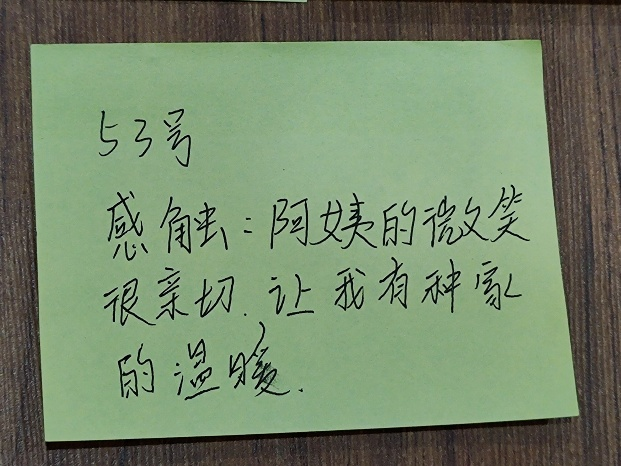 53号
感触：阿姨的微笑
很亲切.让我有种家
的温暖.